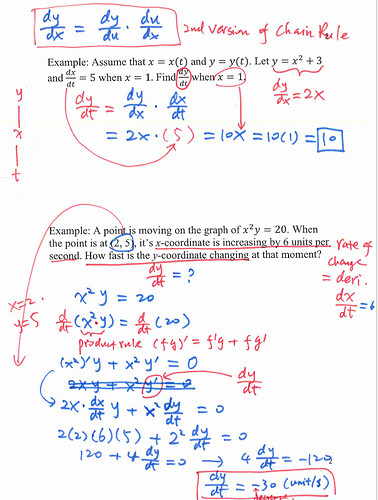 dy/dx = dy/du · du/dx 2nd version of Chain Rule
Example: Assume that x = x(t) and y = y(t). Let y = x² + 3
and dx/dt = 5 when x = 1. Find dy/dt when x = 1.
dy/dx = 2x
y
x
t
dy/dt = dy/dx · dx/dt
= 2x · (5) = 10x = 10(1) = 10
Example: A point is moving on the graph of x²y = 20. When
the point is at (2, 5), it's x-coordinate is increasing by 6 units per
second. How fast is the y-coordinate changing at that moment?
rate of
change
= deri.
dx/dt = 6
dy/dt = ?
x=2
y=5
x²y = 20
d/dt (x²·y) = d/dt (20)
product rule (fg)' = f'g + fg'
(x²)'y + x²y' = 0
2xy + x²y' = 0
dy/dt
2x · dx/dt y + x² dy/dt = 0
2(2)(6)(5) + 2² dy/dt = 0
120 + 4 dy/dt = 0 → 4 dy/dt = -120
dy/dt = -30 (unit/s)